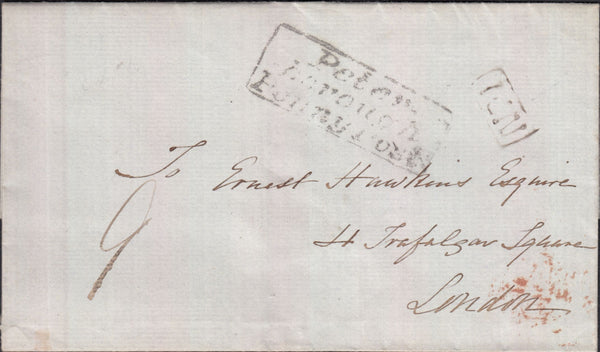 Peter-
borough
Penny Post
To Ernest Hawkins Esquire
4 Trafalgar Square
London
9